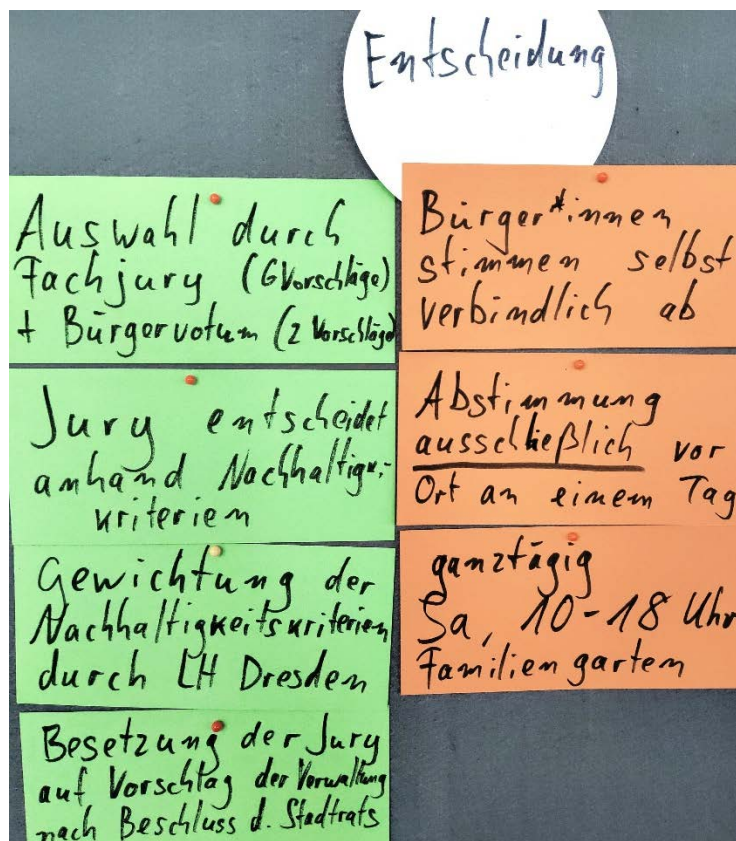 Entscheidung
Auswahl durch
Fachjury (6 Vorschläge)
+ Bürgervotum (2 Vorschläge)
Jury entscheidet
anhand Nachhaltigk.-
kriterien
Gewichtung der
Nachhaltigkeitskriterien
durch LH Dresden
Besetzung der Jury
auf Vorschlag der Verwaltung
nach Beschluss d. Stadtrats
Bürger*innen
stimmen selbst
verbindlich ab
Abstimmung
ausschließlich vor
Ort an einem Tag
ganztägig
Sa, 10-18 Uhr
Familiengarten